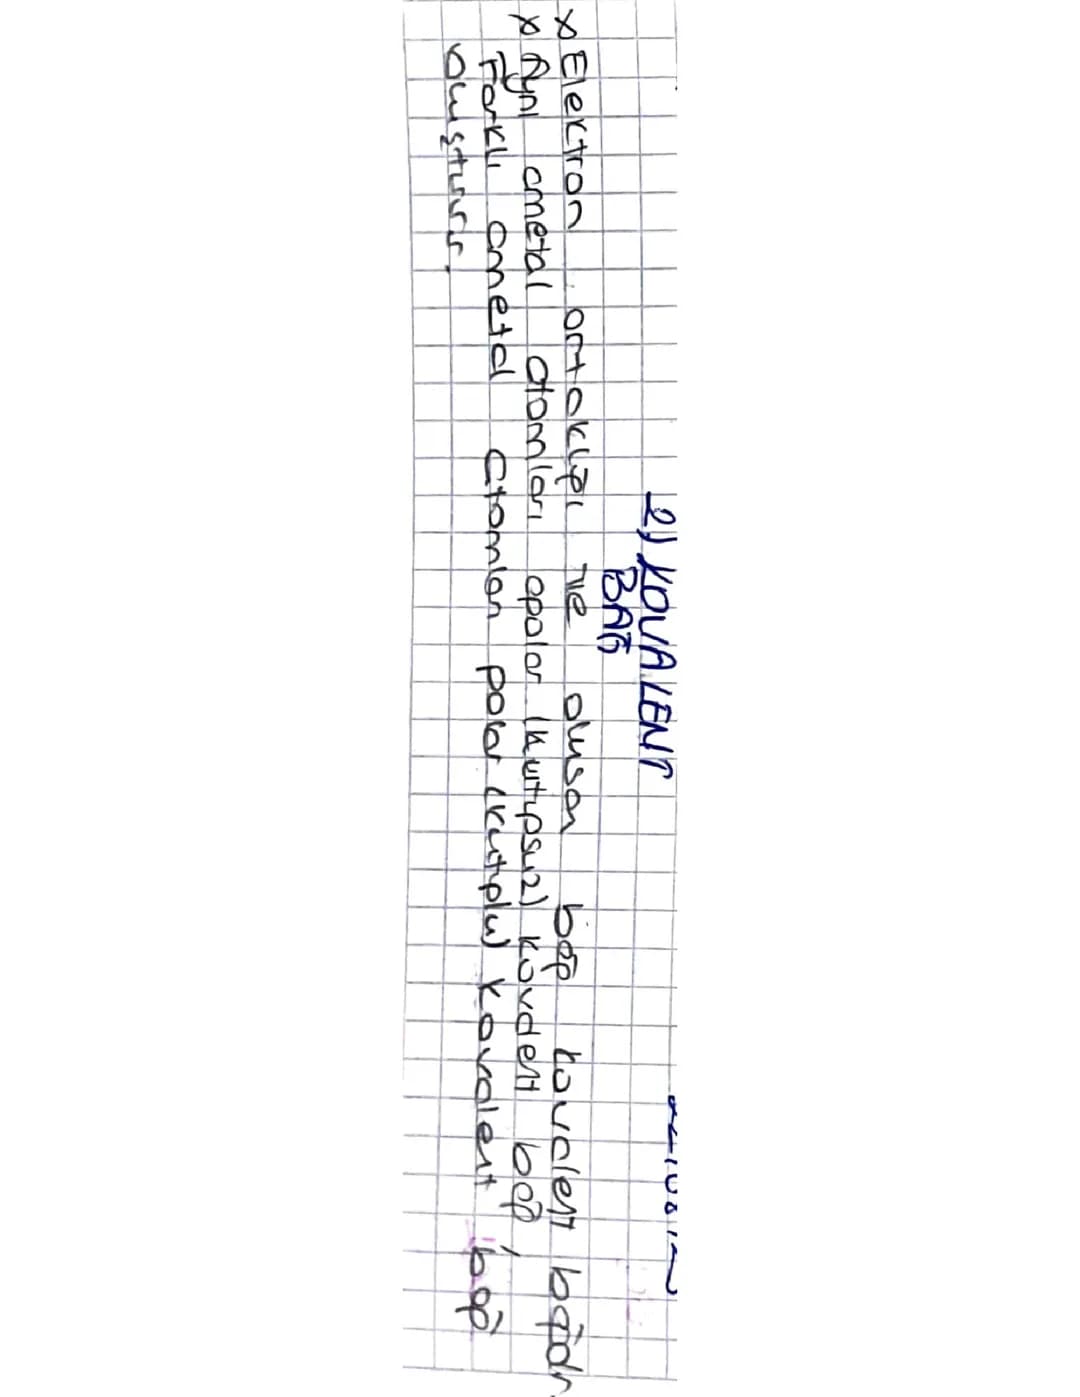 2) KOVALENT
BAĞ
x Elektron ortaklığı ile oluşan bağ kovalent bağdır
x Aynı ametal atomları apolar (kutupsuz) kovalent bağ,
Farklı ametal atomları polar (kutuplu) kovalent bağ
oluşturur.